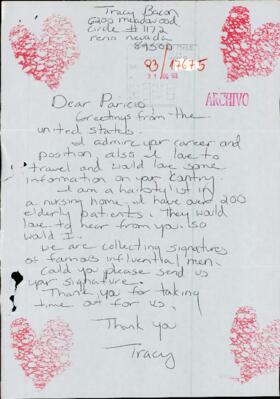 Tracy Bacon
6200 meadowood
Circle #1172
reno nevada
89500
93 / 17675
31 AGO 93
ARCHIVO
Dear Paricio
Greetings from the
united states.
I admire your career and
position, also I love to
travel and would love some
information on your Contry.
I am a hairstylist in
a nursing home. I have over 200
elderly patients. They would
love to hear from you. so
would I.
we are collecting signatures
of famous influential men.
could you please send us
your signature.
Thank you for taking
time out for us.
Thank you
Tracy